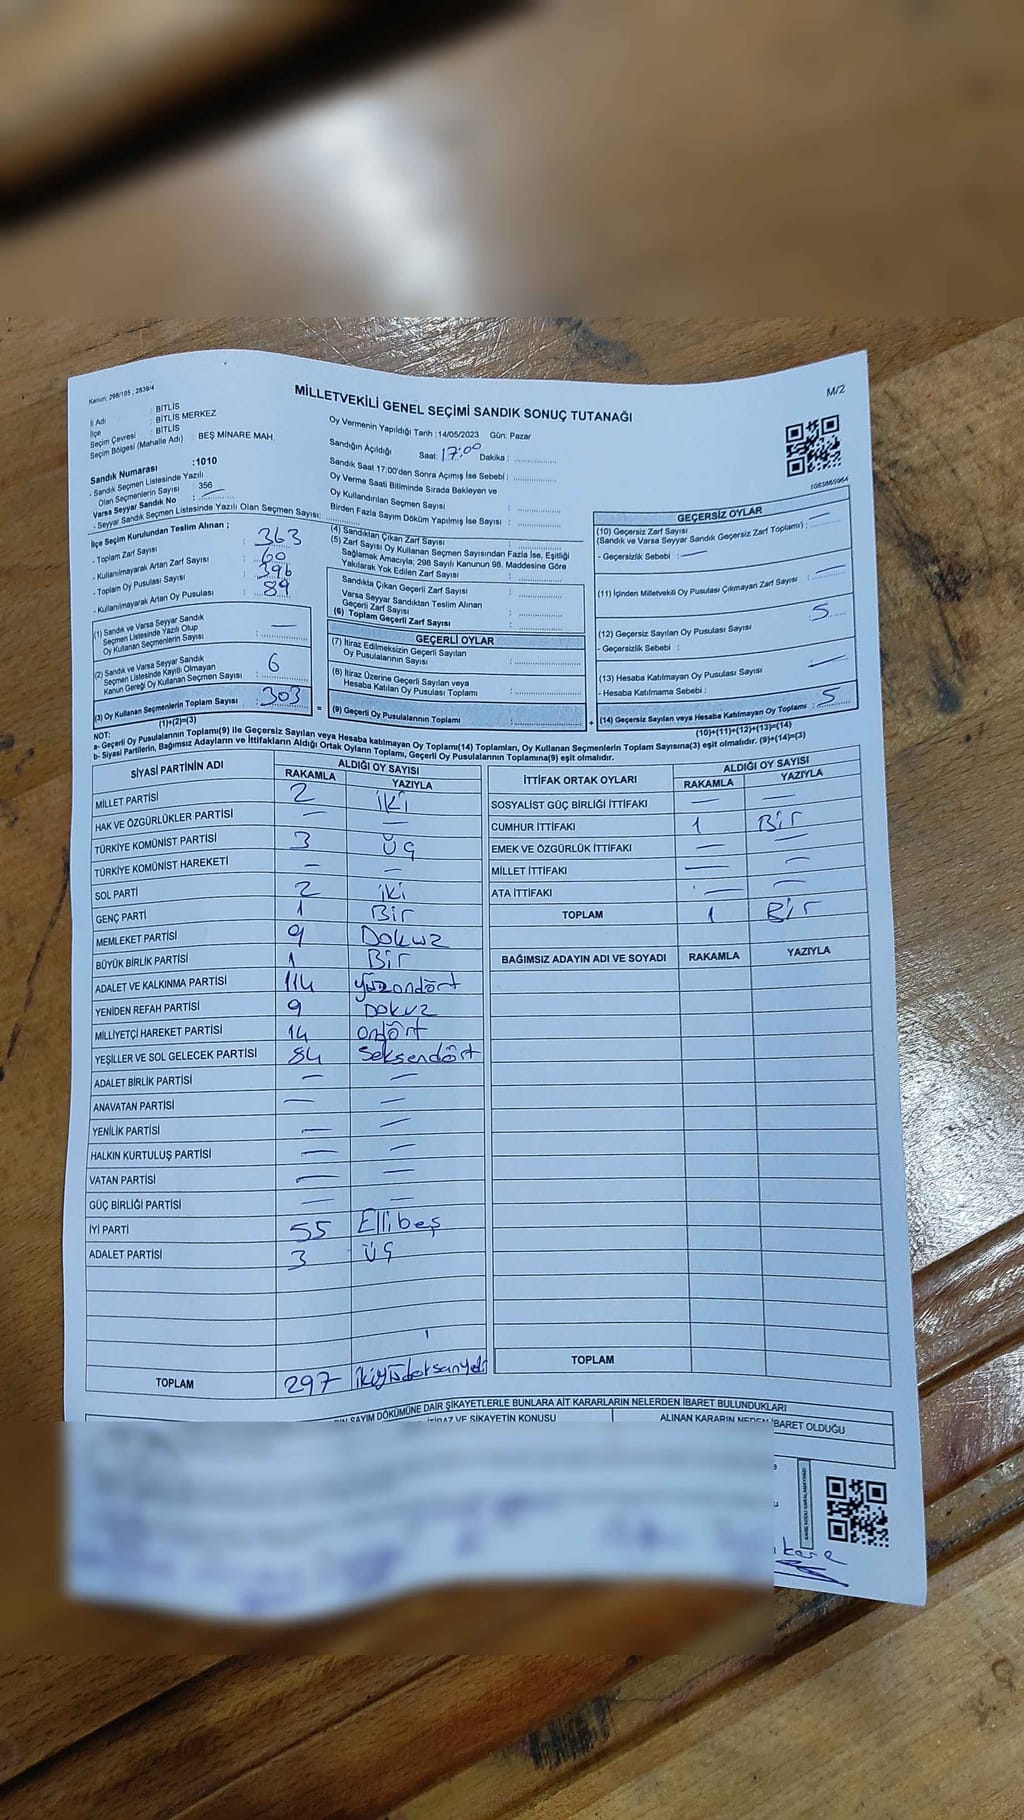 Kanun; 298/105 , 2839/4
MİLLETVEKİLİ GENEL SEÇİMİ SANDIK SONUÇ TUTANAĞI
M/2
İl Adı : BİTLİS
İlçe : BİTLİS MERKEZ
Seçim Çevresi : BİTLİS
Seçim Bölgesi (Mahalle Adı) : BEŞ MİNARE MAH.
Sandık Numarası :1010
- Sandık Seçmen Listesinde Yazılı
Olan Seçmenlerin Sayısı : 356
Varsa Seyyar Sandık No : —
- Seyyar Sandık Seçmen Listesinde Yazılı Olan Seçmen Sayısı:
Oy Vermenin Yapıldığı Tarih :14/05/2023 Gün: Pazar
Sandığın Açıldığı Saat: 17:00 Dakika :
Sandık Saat 17:00'den Sonra Açımış İse Sebebi :
Oy Verme Saati Bitiminde Sırada Bekleyen ve
Oy Kullandırılan Seçmen Sayısı :
Birden Fazla Sayım Döküm Yapılmış İse Sayısı :
1083865964
İlçe Seçim Kurulundan Teslim Alınan ;
- Toplam Zarf Sayısı : 363
- Kullanılmayarak Artan Zarf Sayısı : 60
- Toplam Oy Pusulası Sayısı : 396
- Kullanılmayarak Artan Oy Pusulası : 89
(1) Sandık ve Varsa Seyyar Sandık
Seçmen Listesinde Yazılı Olup
Oy Kullanan Seçmenlerin Sayısı : —
(2) Sandık ve Varsa Seyyar Sandık
Seçmen Listesinde Kayıtlı Olmayan
Kanun Gereği Oy Kullanan Seçmen Sayısı : 6
(3) Oy Kullanan Seçmenlerin Toplam Sayısı : 303
(1)+(2)=(3)
(4) Sandıktan Çıkan Zarf Sayısı :
(5) Zarf Sayısı Oy Kullanan Seçmen Sayısından Fazla İse, Eşitliği
Sağlamak Amacıyla; 298 Sayılı Kanunun 98. Maddesine Göre
Yakılarak Yok Edilen Zarf Sayısı :
Sandıkta Çıkan Geçerli Zarf Sayısı :
Varsa Seyyar Sandıktan Teslim Alınan
Geçerli Zarf Sayısı :
(6) Toplam Geçerli Zarf Sayısı :
GEÇERLİ OYLAR
(7) İtiraz Edilmeksizin Geçerli Sayılan
Oy Pusulalarının Sayısı :
(8) İtiraz Üzerine Geçerli Sayılan veya
Hesaba Katılan Oy Pusulası Toplamı :
= (9) Geçerli Oy Pusulalarının Toplamı :
GEÇERSİZ OYLAR
(10) Geçersiz Zarf Sayısı
(Sandık ve Varsa Seyyar Sandık Geçersiz Zarf Toplamı) : —
- Geçersizlik Sebebi : —
(11) İçinden Milletvekili Oy Pusulası Çıkmayan Zarf Sayısı : —
(12) Geçersiz Sayılan Oy Pusulası Sayısı : 5
- Geçersizlik Sebebi :
(13) Hesaba Katılmayan Oy Pusulası Sayısı : —
- Hesaba Katılmama Sebebi :
+ (14) Geçersiz Sayılan veya Hesaba Katılmayan Oy Toplamı : 5
(10)+(11)+(12)+(13)=(14)
NOT:
a- Geçerli Oy Pusulalarının Toplamı(9) ile Geçersiz Sayılan veya Hesaba katılmayan Oy Toplamı(14) Toplamları, Oy Kullanan Seçmenlerin Toplam Sayısına(3) eşit olmalıdır. (9)+(14)=(3)
b- Siyasi Partilerin, Bağımsız Adayların ve İttifakların Aldığı Ortak Oyların Toplamı, Geçerli Oy Pusulalarının Toplamına(9) eşit olmalıdır.
SİYASİ PARTİNİN ADI ALDIĞI OY SAYISI
RAKAMLA YAZIYLA
MİLLET PARTİSİ 2 iki
HAK VE ÖZGÜRLÜKLER PARTİSİ — —
TÜRKİYE KOMÜNİST PARTİSİ 3 üç
TÜRKİYE KOMÜNİST HAREKETİ — —
SOL PARTİ 2 iki
GENÇ PARTİ 1 Bir
MEMLEKET PARTİSİ 9 Dokuz
BÜYÜK BİRLİK PARTİSİ 1 Bir
ADALET VE KALKINMA PARTİSİ 114 yüzondört
YENİDEN REFAH PARTİSİ 9 Dokuz
MİLLİYETÇİ HAREKET PARTİSİ 14 ondört
YEŞİLLER VE SOL GELECEK PARTİSİ 84 Seksendört
ADALET BİRLİK PARTİSİ — —
ANAVATAN PARTİSİ — —
YENİLİK PARTİSİ — —
HALKIN KURTULUŞ PARTİSİ — —
VATAN PARTİSİ — —
GÜÇ BİRLİĞİ PARTİSİ — —
İYİ PARTİ 55 Ellibeş
ADALET PARTİSİ 3 üç
TOPLAM 297
İTTİFAK ORTAK OYLARI ALDIĞI OY SAYISI
RAKAMLA YAZIYLA
SOSYALİST GÜÇ BİRLİĞİ İTTİFAKI — —
CUMHUR İTTİFAKI 1 Bir
EMEK VE ÖZGÜRLÜK İTTİFAKI — —
MİLLET İTTİFAKI — —
ATA İTTİFAKI — —
TOPLAM 1 Bir
BAĞIMSIZ ADAYIN ADI VE SOYADI RAKAMLA YAZIYLA
TOPLAM
SAYIM DÖKÜMÜNE DAİR ŞİKAYETLERLE BUNLARA AİT KARARLARIN NELERDEN İBARET BULUNDUKLARI
İTİRAZ VE ŞİKAYETİN KONUSU ALINAN KARARIN NEDEN İBARET OLDUĞU